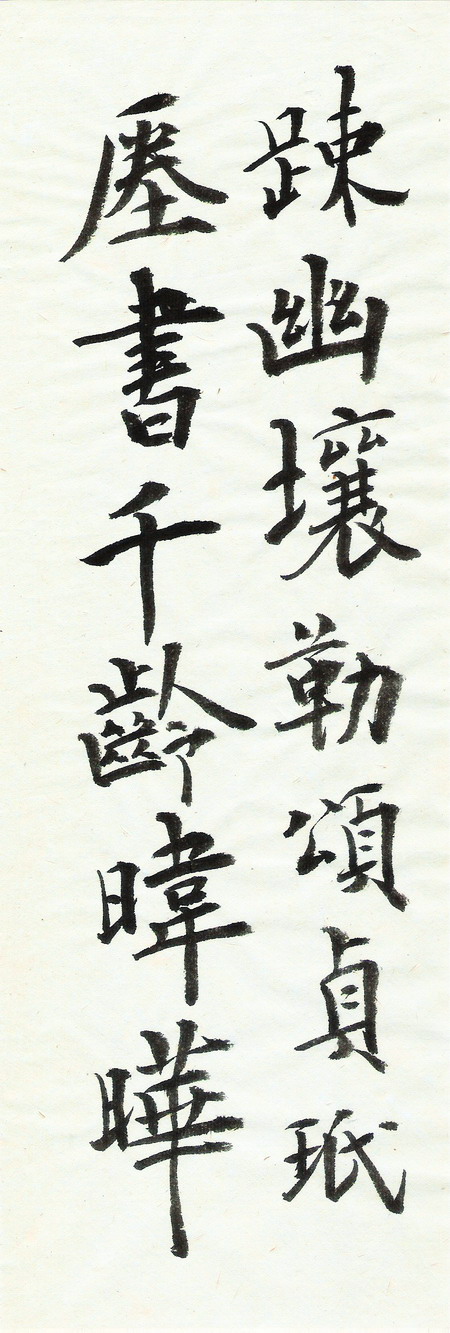 踈幽壤勒頌貞珉
書千齡暐曄